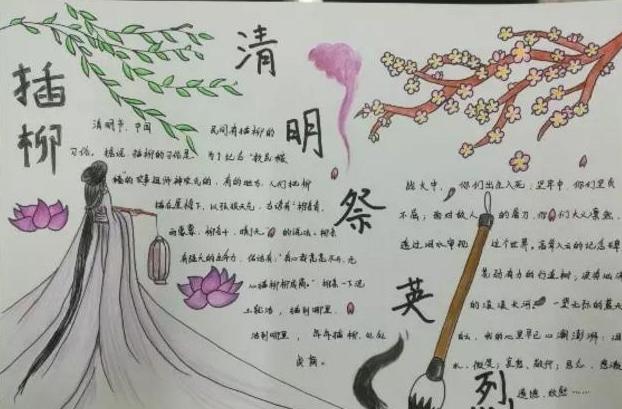 插柳
清明祭英烈
清明节，中国 民间有插柳的
习俗。据说，插柳的习俗是 为了纪念"教民稼
穑"的农事祖师神农氏的。有的地方，人们把柳
插在屋檐下，以预报天气，古谚有"柳条青，
雨蒙蒙；柳条干，晴了天"的说法。柳条
有强大的生命力，俗话说："有心栽花花不开，无
心插柳柳成荫。"柳条一下说
土就活，插到哪里，
活到哪里， 年年插柳，处处
成荫。
战火中，你们出生入死；牢中，你们坚贞
不屈；面对敌人的屠刀，你们大义凛然。
透过泪水审视 这个世界，高耸入云的纪念碑
苍劲有力的行道树，
的滚滚长河，一望无际的蓝天
我的心里早已心潮澎湃，泪
水、微笑；哀愁、敬仰；思念、感激
遗憾、欣慰……